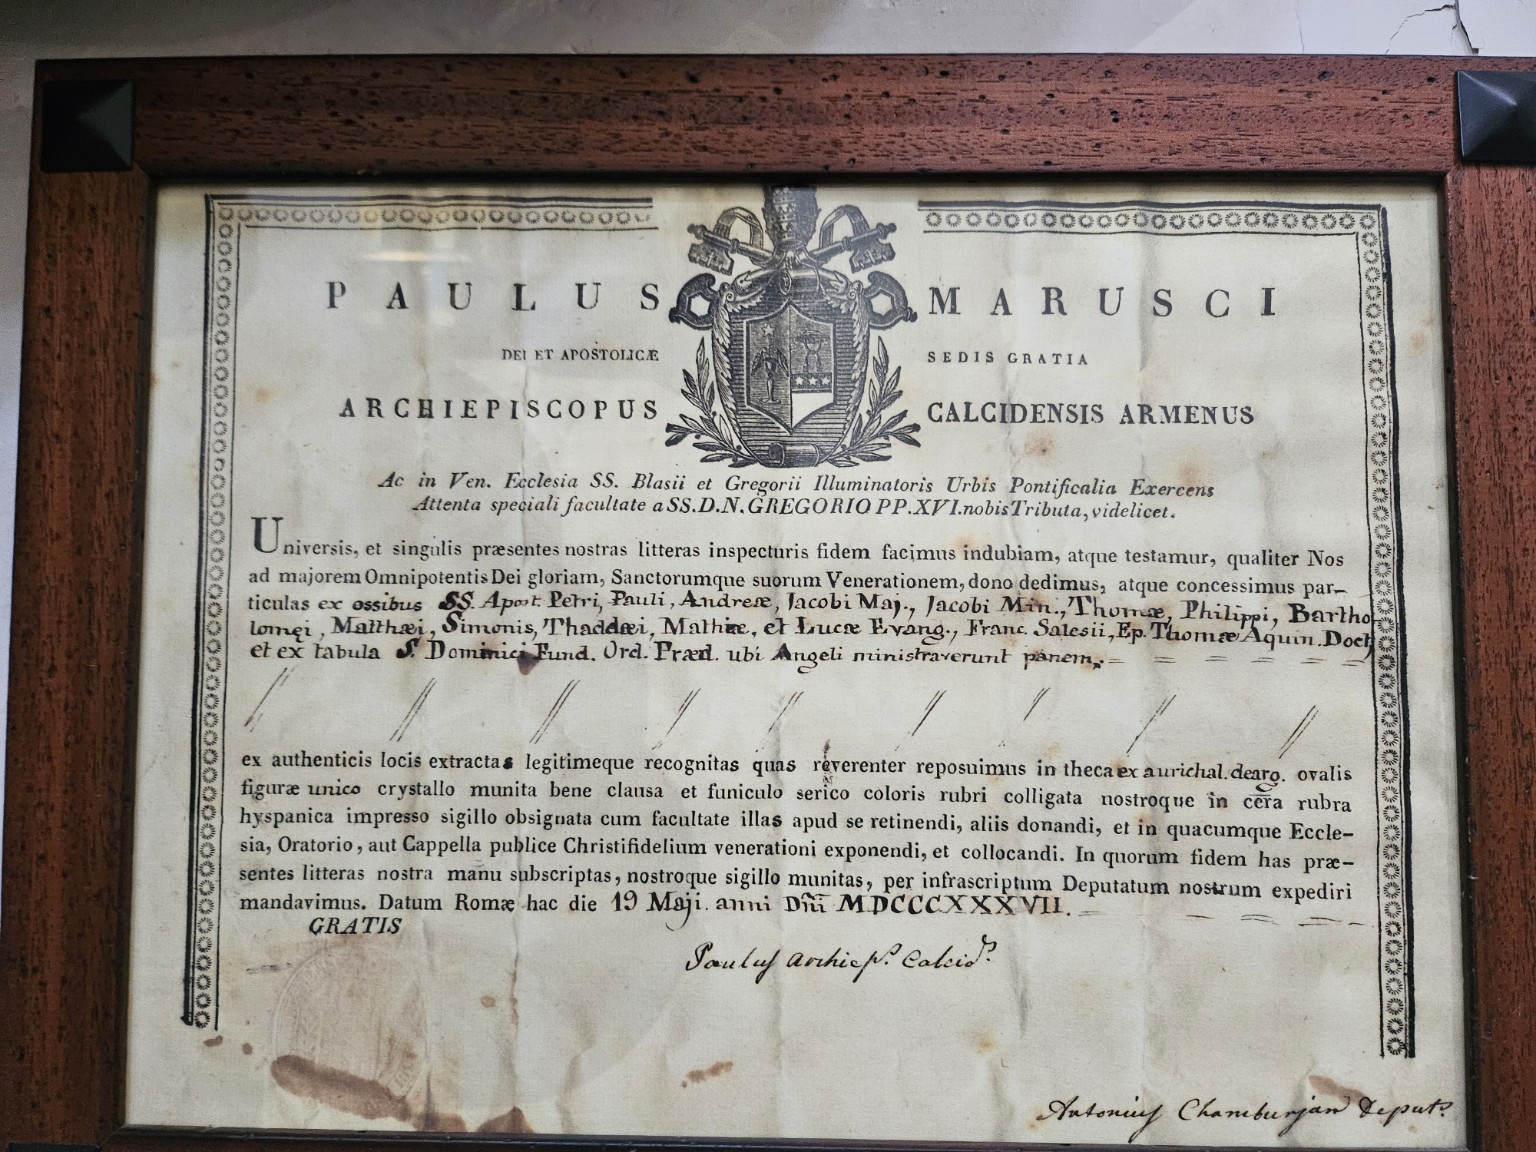 PAULUS MARUSCI
DEI ET APOSTOLICÆ SEDIS GRATIA
ARCHIEPISCOPUS CALCIDENSIS ARMENUS
Ac in Ven. Ecclesia SS. Blasii et Gregorii Illuminatoris Urbis Pontificalia Exercens
Attenta speciali facultate a SS.D.N. GREGORIO PP.XVI. nobis Tributa, videlicet.
Universis, et singulis præsentes nostras litteras inspecturis fidem facimus indubiam, atque testamur, qualiter Nos
ad majorem Omnipotentis Dei gloriam, Sanctorumque suorum Venerationem, dono dedimus, atque concessimus par-
ticulas ex ossibus SS. Apost. Petri, Pauli, Andreæ, Jacobi Maj., Jacobi Min., Thomæ, Philippi, Bartho
lomęi, Matthæi, Simonis, Thaddæi, Mathiæ, et Lucæ Evang., Franc. Salesii, Ep. Thomæ Aquin. Doct,
et ex tabula S. Dominici Fund. Ord. Præd. ubi Angeli ministraverunt panem,
ex authenticis locis extractas legitimeque recognitas quas reverenter reposuimus in theca ex aurichal. dearg. ovalis
figuræ unico crystallo munita bene clausa et funiculo serico coloris rubri colligata nostroque in cera rubra
hyspanica impresso sigillo obsignata cum facultate illas apud se retinendi, aliis donandi, et in quacumque Eccle-
sia, Oratorio, aut Cappella publice Christifidelium venerationi exponendi, et collocandi. In quorum fidem has præ-
sentes litteras nostra manu subscriptas, nostroque sigillo munitas, per infrascriptum Deputatum nostrum expediri
mandavimus. Datum Romæ hac die 19 Maji. anni Dñi MDCCCXXXVII.
GRATIS
Paulus Archiep. Calcid.
Antonius Chamburjan Deput.